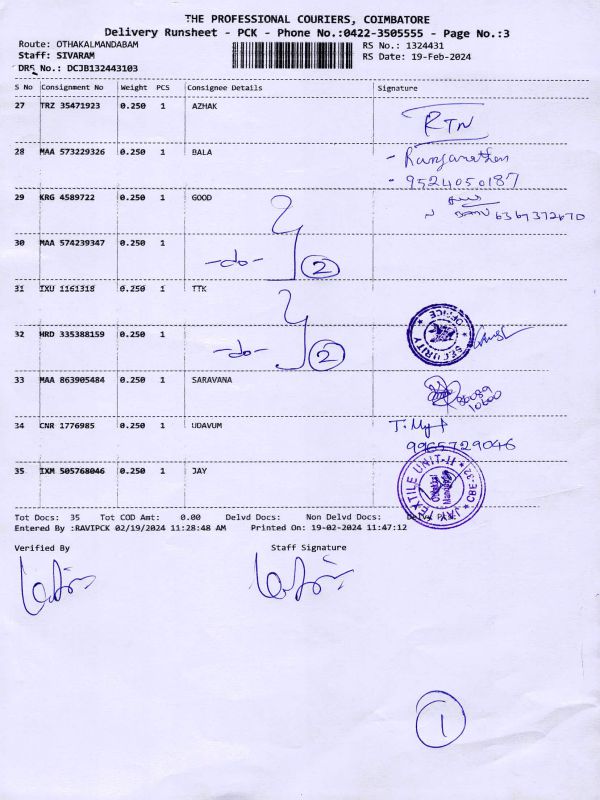 THE PROFESSIONAL COURIERS, COIMBATORE
Delivery Runsheet - PCK - Phone No.:0422-3505555 - Page No.:3
Route: OTHAKALMANDABAM RS No.: 1324431
Staff: SIVARAM RS Date: 19-Feb-2024
DRS No.: DCJB132443103
S No Consignment No Weight PCS Consignee Details Signature
27 TRZ 35471923 0.250 1 AZHAK RTN
28 MAA 573229326 0.250 1 BALA - Ranganathan
- 9524050187
29 KRG 4589722 0.250 1 GOOD
6369372670
30 MAA 574239347 0.250 1 -do- 2
31 IXU 1161318 0.250 1 TTK
SECURITY OFFICE
32 HRD 335388159 0.250 1 -do- 2
33 MAA 863905484 0.250 1 SARAVANA
34 CNR 1776985 0.250 1 UDAVUM
9965729046
35 IXM 505768046 0.250 1 JAY JAY TEXTILE UNIT-II
Tot Docs: 35 Tot COD Amt: 0.00 Delvd Docs: Non Delvd Docs:
Entered By :RAVIPCK 02/19/2024 11:28:48 AM Printed On: 19-02-2024 11:47:12
Verified By Staff Signature
1